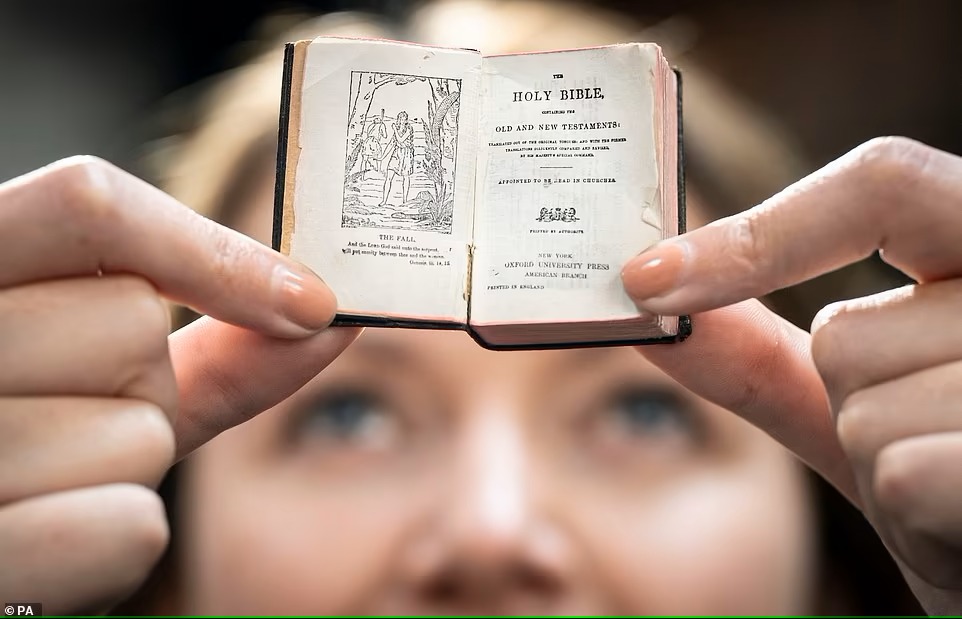 THE FALL,
And the LORD God said unto the serpent, I
will put enmity between thee and the woman.
Genesis iii. 14, 15.
THE
HOLY BIBLE,
CONTAINING THE
OLD AND NEW TESTAMENTS:
TRANSLATED OUT OF THE ORIGINAL TONGUES; AND WITH THE FORMER
TRANSLATIONS DILIGENTLY COMPARED AND REVISED,
BY HIS MAJESTY'S SPECIAL COMMAND.
APPOINTED TO BE READ IN CHURCHES.
PRINTED BY AUTHORITY.
NEW YORK
OXFORD UNIVERSITY PRESS
AMERICAN BRANCH
PRINTED IN ENGLAND
© PA